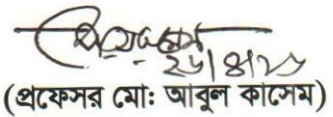 ২৮।৪।২৫
(প্রফেসর মোঃ আবুল কাসেম)